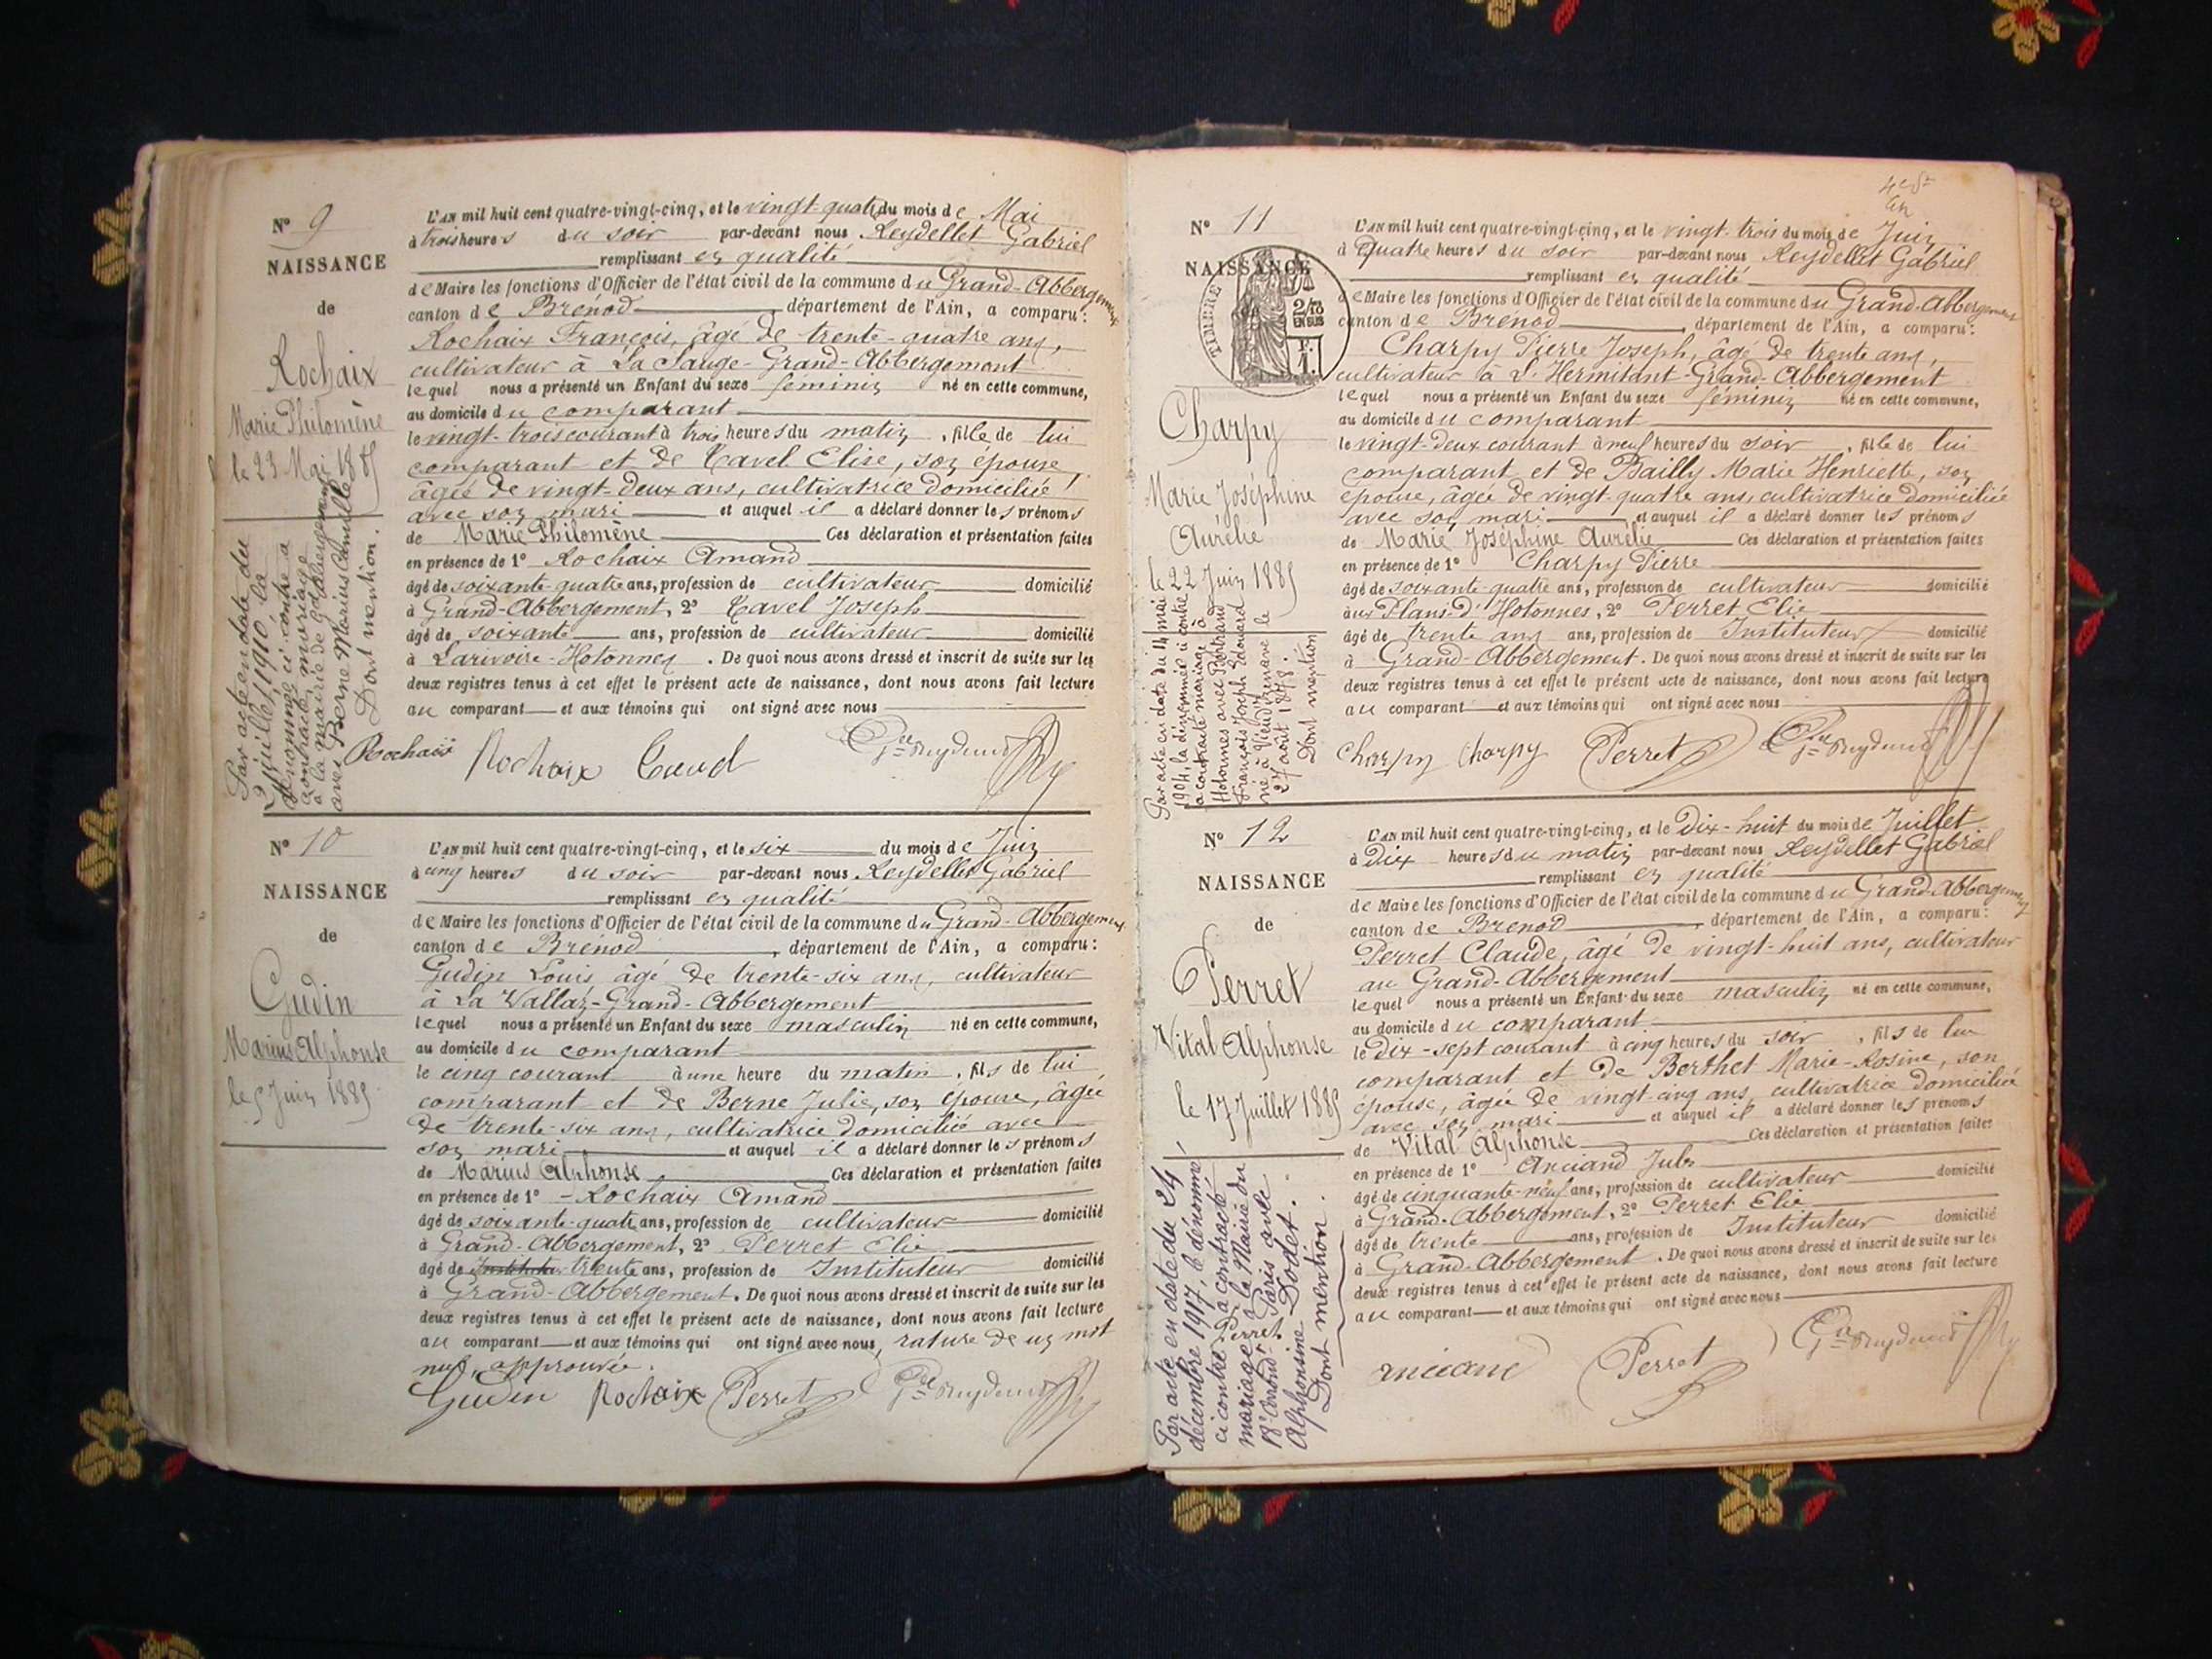 N° 9
NAISSANCE
de
Rochaix
Marie Philomène
le 23 Mai 1885
Par acte en date du
2 juillet 1910, la
dénommée ci-contre a
contracté mariage
à la mairie de Gd Abbergement
avec Berne Marius Camille
Dont mention.
L'AN mil huit cent quatre-vingt-cinq, et le vingt-quatre du mois de Mai
à trois heures du soir par-devant nous Reydellet Gabriel
remplissant en qualité
de Maire les fonctions d'Officier de l'état civil de la commune du Grand-Abbergement
canton de Brénod, département de l'Ain, a comparu:
Rochaix François, âgé de trente-quatre ans,
cultivateur à La Sauge-Grand-Abbergement
lequel nous a présenté un Enfant du sexe féminin né en cette commune,
au domicile du comparant
le vingt-trois courant à trois heures du matin, fille de lui
comparant et de Tavel Elise, son épouse,
âgée de vingt-deux ans, cultivatrice domiciliée
avec son mari et auquel il a déclaré donner les prénoms
de Marie Philomène Ces déclaration et présentation faites
en présence de 1° Rochaix Amand
âgé de soixante-quatre ans, profession de cultivateur domicilié
à Grand-Abbergement, 2° Tavel Joseph
âgé de soixante ans, profession de cultivateur domicilié
à Larivoire-Hotonnes. De quoi nous avons dressé et inscrit de suite sur les
deux registres tenus à cet effet le présent acte de naissance, dont nous avons fait lecture
au comparant et aux témoins qui ont signé avec nous
Rochaix Rochaix
N° 10
NAISSANCE
de
Gudin
Marius Alphonse
le 5 Juin 1885
L'AN mil huit cent quatre-vingt-cinq, et le six du mois de Juin
à cinq heures du soir par-devant nous Reydellet Gabriel
remplissant en qualité
de Maire les fonctions d'Officier de l'état civil de la commune du Grand-Abbergement
canton de Brénod, département de l'Ain, a comparu:
Gudin Louis âgé de trente-six ans, cultivateur
à La Vallaz-Grand-Abbergement
lequel nous a présenté un Enfant du sexe masculin né en cette commune,
au domicile du comparant
le cinq courant à une heure du matin, fils de lui
comparant et de Berne Julie, son épouse, âgée
de trente-six ans, cultivatrice domiciliée avec
son mari et auquel il a déclaré donner les prénoms
de Marius Alphonse Ces déclaration et présentation faites
en présence de 1° - Rochaix Amand
âgé de soixante-quatre ans, profession de cultivateur domicilié
à Grand-Abbergement, 2° Perret Elie
âgé de trente ans, profession de Instituteur domicilié
à Grand-Abbergement. De quoi nous avons dressé et inscrit de suite sur les
deux registres tenus à cet effet le présent acte de naissance, dont nous avons fait lecture
au comparant et aux témoins qui ont signé avec nous, rature de un mot
nul, approuvée.
Gudin Rochaix Perret
N° 11
NAISSANCE
TIMBRE
2/10
EN SUS
F.
1.
Charpy
Marie Joséphine
Aurélie
le 22 Juin 1885
Par acte en date du 14 mai
1904, la dénommée ci contre
a contracté mariage à
Hotonnes avec Bertrand
François Joseph Edouard
né à Vieu d'Izenave le
27 août 1878.
Dont mention
L'AN mil huit cent quatre-vingt-cinq, et le vingt-trois du mois de Juin
à quatre heures du soir par-devant nous Reydellet Gabriel
remplissant en qualité
de Maire les fonctions d'Officier de l'état civil de la commune du Grand-Abbergement
canton de Brénod, département de l'Ain, a comparu:
Charpy Pierre Joseph, âgé de trente ans,
cultivateur à L'Hermitant-Grand-Abbergement
lequel nous a présenté un Enfant du sexe féminin né en cette commune,
au domicile du comparant
le vingt-deux courant à neuf heures du soir, fille de lui
comparant et de Bailly Marie Henriette, son
épouse, âgée de vingt-quatre ans, cultivatrice domiciliée
avec son mari et auquel il a déclaré donner les prénoms
de Marie Joséphine Aurélie Ces déclaration et présentation faites
en présence de 1° Charpy Pierre
âgé de soixante-quatre ans, profession de cultivateur domicilié
aux Plans-d'Hotonnes, 2° Perret Elie
âgé de trente ans ans, profession de Instituteur domicilié
à Grand-Abbergement. De quoi nous avons dressé et inscrit de suite sur les
deux registres tenus à cet effet le présent acte de naissance, dont nous avons fait lecture
au comparant et aux témoins qui ont signé avec nous
Charpy Charpy Perret
N° 12
NAISSANCE
de
Perret
Vital Alphonse
le 17 Juillet 1885
Par acte en date du 24
décembre 1917, le dénommé
ci contre Perret a contracté
mariage à la Mairie du
18e Arrondt Paris avec
Alphonsine Dodet.
Dont mention.
L'AN mil huit cent quatre-vingt-cinq, et le Dix-huit du mois de Juillet
à Dix heures du matin par-devant nous Reydellet Gabriel
remplissant en qualité
de Maire les fonctions d'Officier de l'état civil de la commune du Grand-Abbergement
canton de Brénod, département de l'Ain, a comparu:
Perret Claude, âgé de vingt-huit ans, cultivateur
au Grand-Abbergement
lequel nous a présenté un Enfant du sexe masculin né en cette commune,
au domicile du comparant
le Dix-sept courant à cinq heures du soir, fils de lui
comparant et de Berthet Marie-Rosine, son
épouse, âgée de vingt-cinq ans, cultivatrice domiciliée
avec son mari et auquel il a déclaré donner les prénoms
de Vital Alphonse Ces déclaration et présentation faites
en présence de 1° Anciand Jules
âgé de cinquante-neuf ans, profession de cultivateur domicilié
à Grand-Abbergement, 2° Perret Elie
âgé de trente ans, profession de Instituteur domicilié
à Grand-Abbergement. De quoi nous avons dressé et inscrit de suite sur les
deux registres tenus à cet effet le présent acte de naissance, dont nous avons fait lecture
au comparant et aux témoins qui ont signé avec nous
Perret